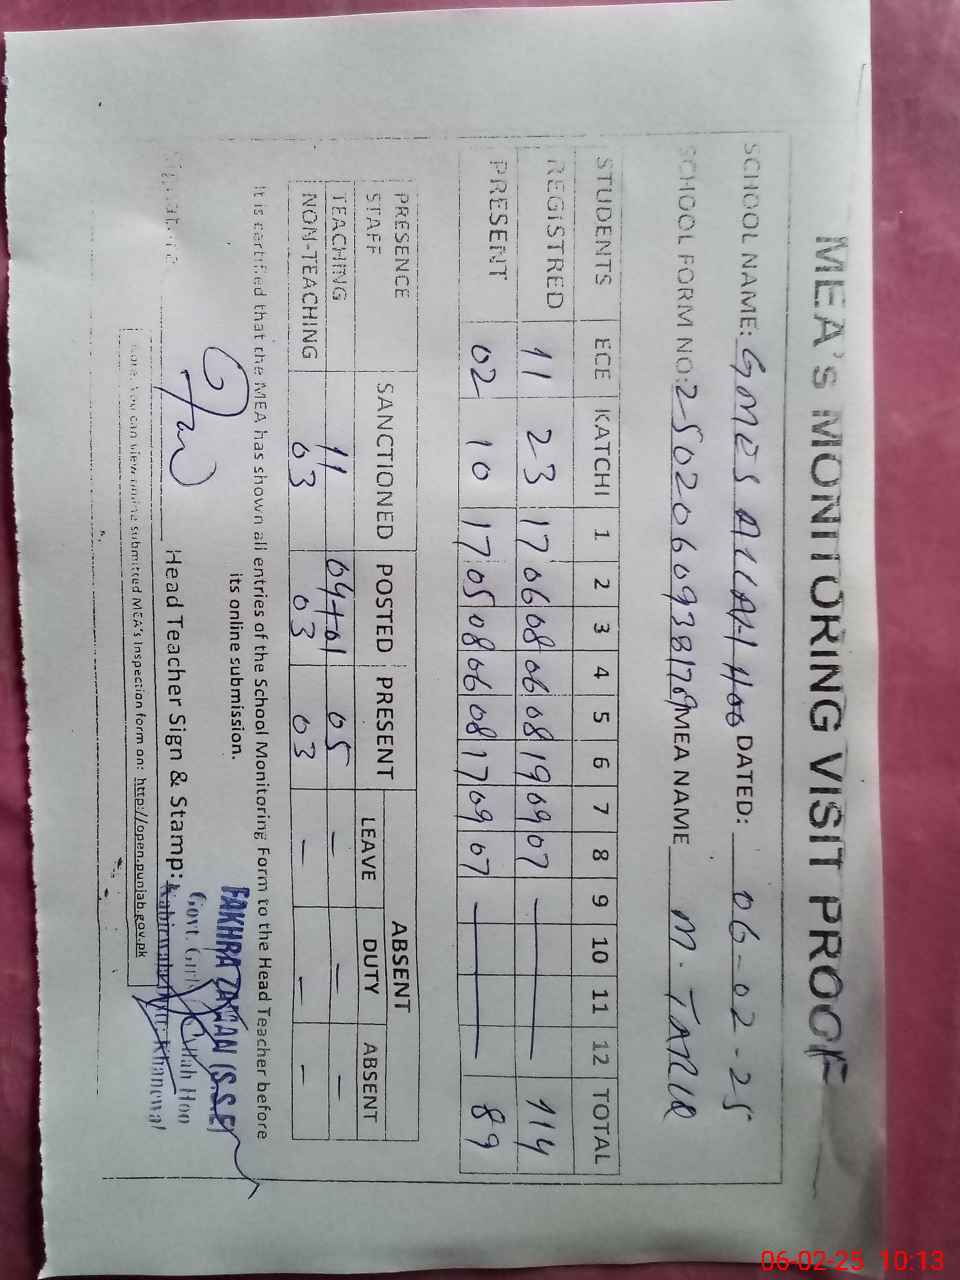 MEA's MONITORING VISIT PROOF
SCHOOL NAME: GMES ALLAH HOO DATED: 06-02-25
SCHOOL FORM NO: MEA NAME M. TARIQ
STUDENTS ECE KATCHI 1 2 3 4 5 6 7 8 9 10 11 12 TOTAL
REGISTRED 11 23 17 06 08 06 08 19 09 07 — 114
PRESENT 02 10 17 05 08 06 08 17 09 07 — 89
PRESENCE STAFF SANCTIONED POSTED PRESENT ABSENT
LEAVE DUTY ABSENT
TEACHING 11 04+01 05 - - -
NON-TEACHING 03 03 03 - - -
It is certified that the MEA has shown all entries of the School Monitoring Form to the Head Teacher before
its online submission.
Head Teacher Sign & Stamp:
FAKHRA ZAMAN (S.S.E)
Govt. Girls Allah Hoo
Kabirwala Khanewal
Note: You can view online submitted MEA's Inspection form on: http://open.punjab.gov.pk
06-02-25 10:13